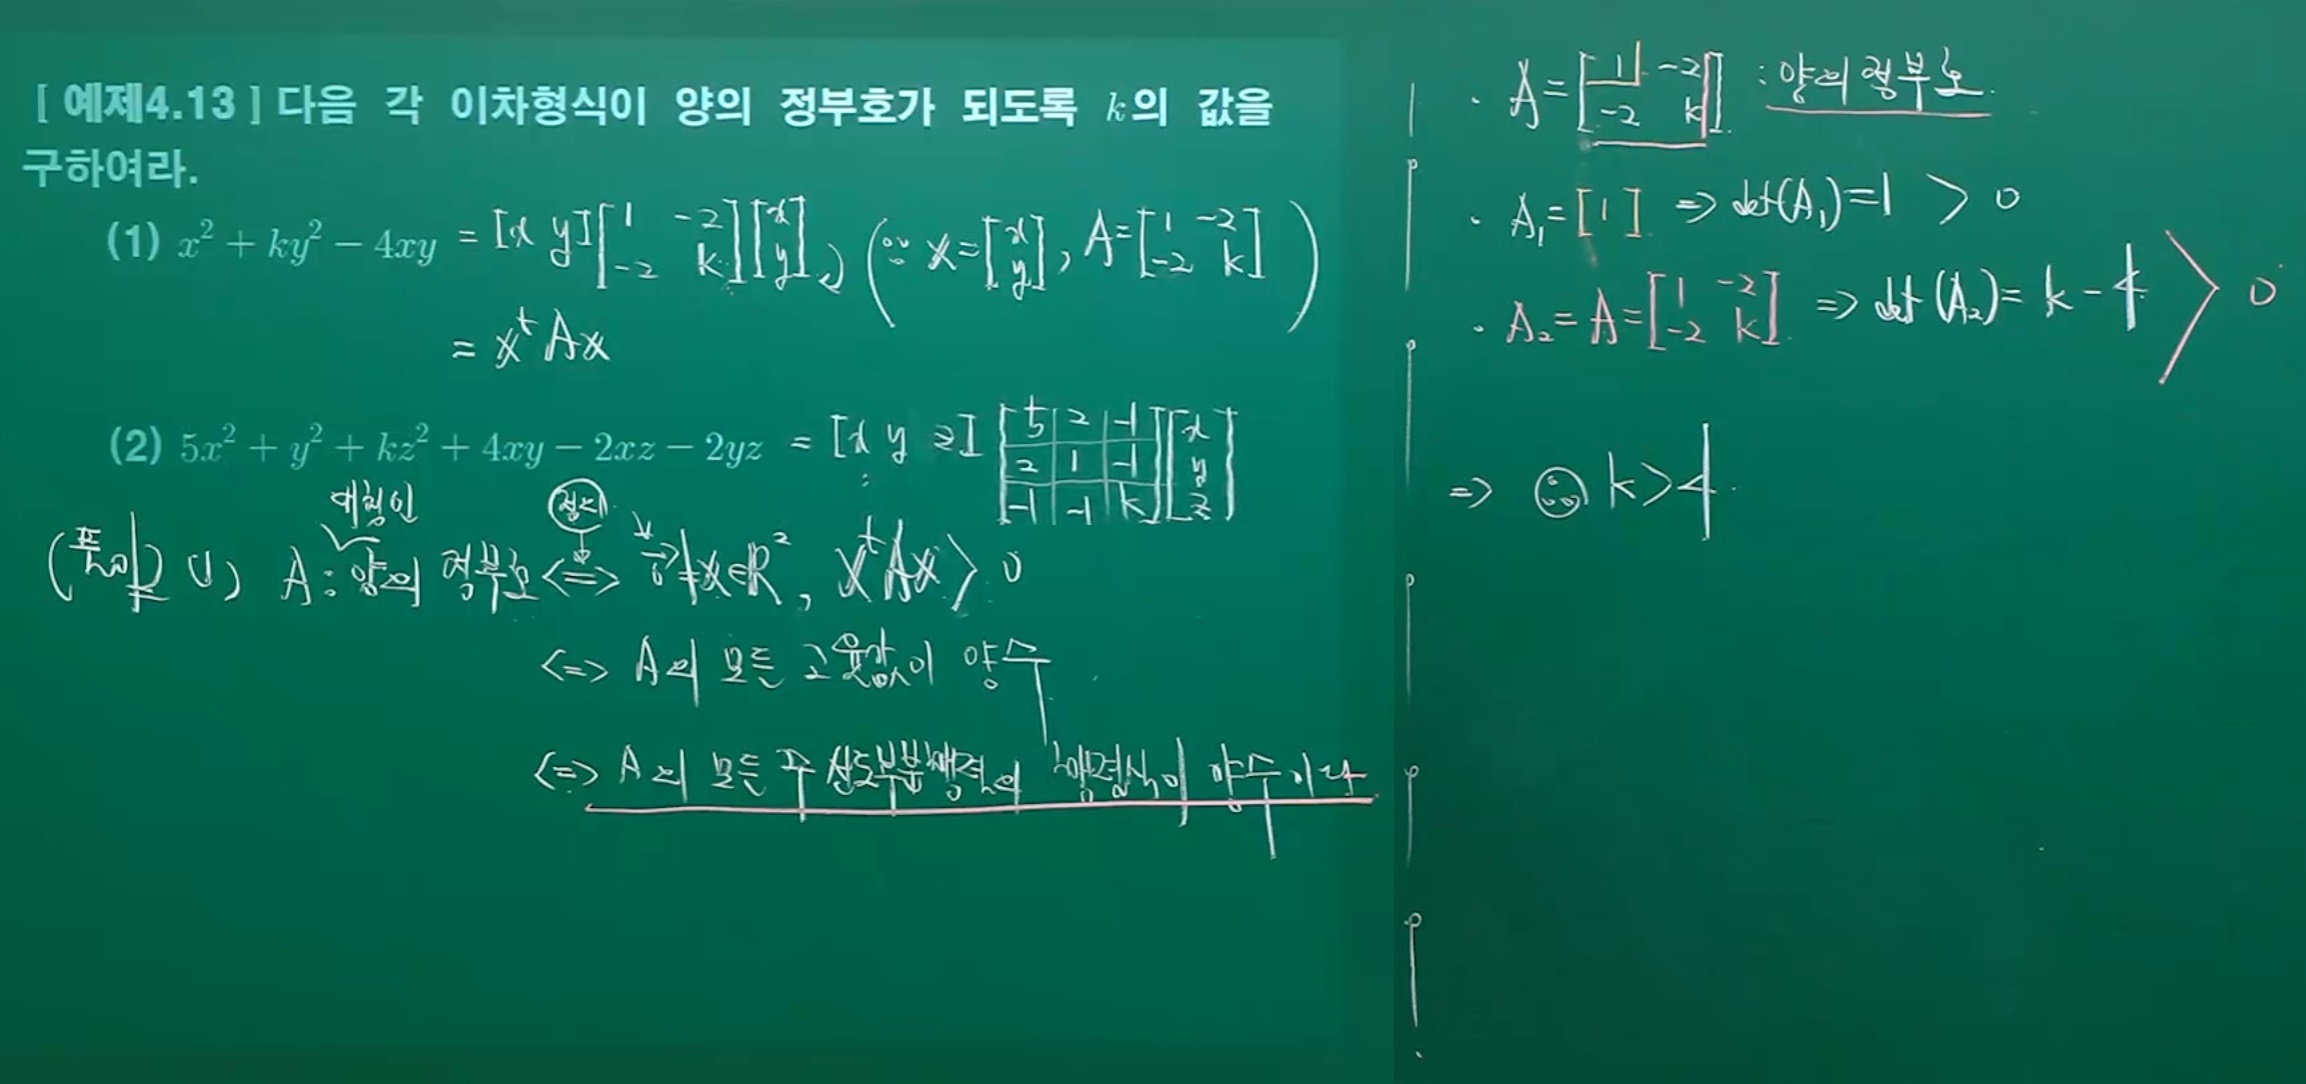 [ 예제4.13 ] 다음 각 이차형식이 양의 정부호가 되도록 k의 값을
구하여라.
(1) x² + ky² − 4xy = [x y][1 -2; -2 k][x; y], (∵ x=[x; y], A=[1 -2; -2 k])
= xᵗAx
(2) 5x² + y² + kz² + 4xy − 2xz − 2yz = [x y z][5 2 -1; 2 1 -1; -1 -1 k][x; y; z]
대칭인 정의
(풀이) (1) A : 양의 정부호 <=> ∀x∈R², xᵗAx > 0
<=> A의 모든 고유값이 양수
<=> A의 모든 주 선도부분행렬의 행렬식이 양수이다
· A=[1 -2; -2 k] : 양의 정부호.
· A₁=[1] => det(A₁)=1 > 0
· A₂=A=[1 -2; -2 k] => det(A₂)= k-4 > 0
=> ∴ k>4.